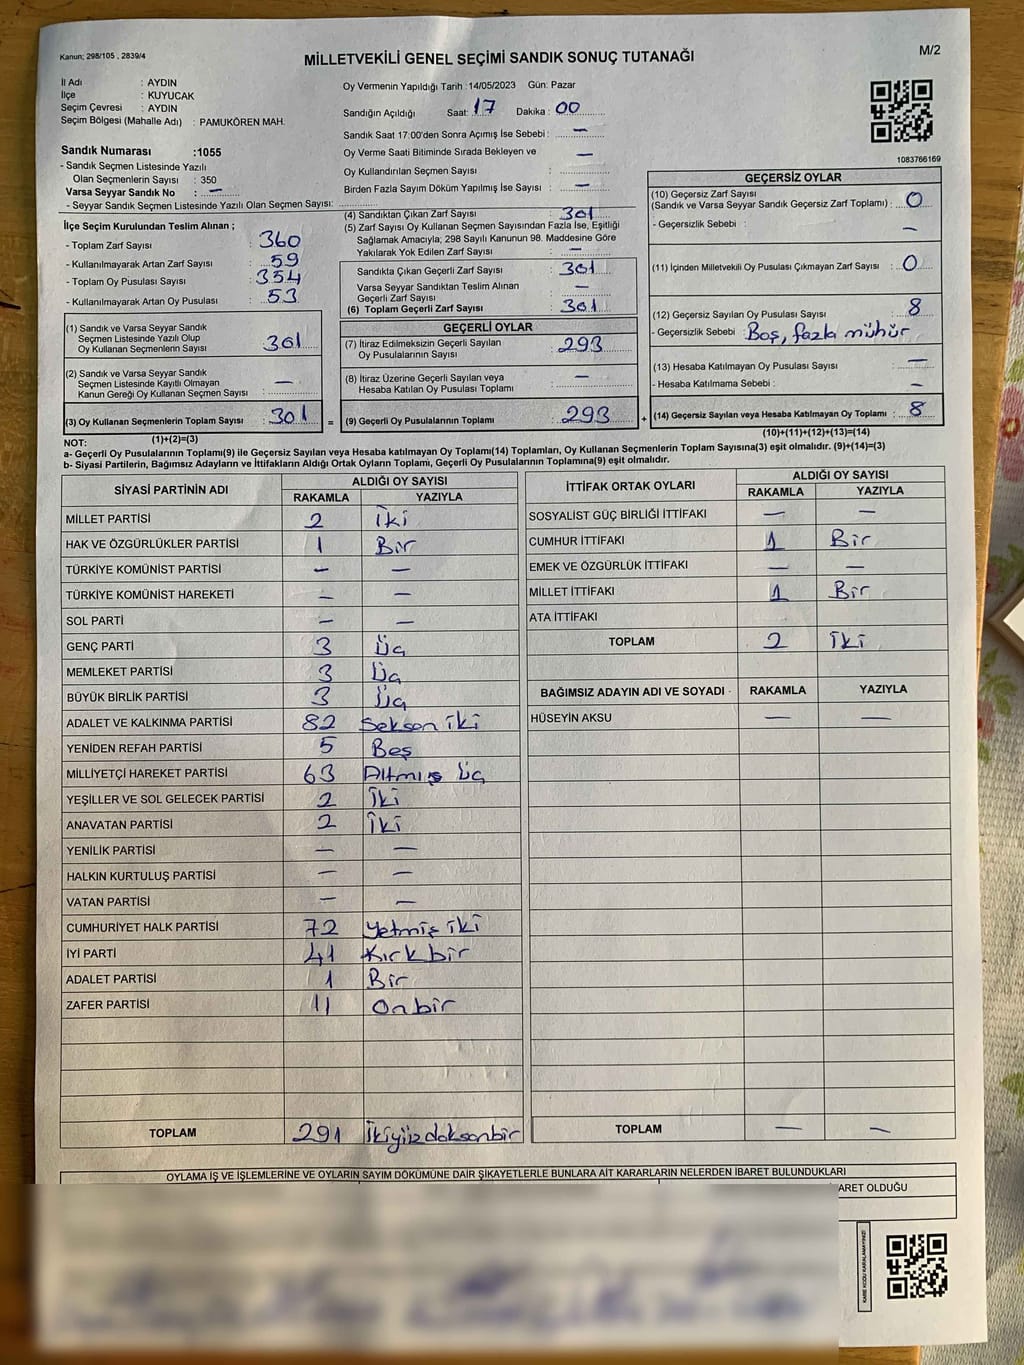 Kanun; 298/105 , 2839/4
MİLLETVEKİLİ GENEL SEÇİMİ SANDIK SONUÇ TUTANAĞI
M/2
İl Adı : AYDIN
İlçe : KUYUCAK
Seçim Çevresi : AYDIN
Seçim Bölgesi (Mahalle Adı) : PAMUKÖREN MAH.
Sandık Numarası :1055
- Sandık Seçmen Listesinde Yazılı
Olan Seçmenlerin Sayısı : 350
Varsa Seyyar Sandık No : —
- Seyyar Sandık Seçmen Listesinde Yazılı Olan Seçmen Sayısı:
Oy Vermenin Yapıldığı Tarih :14/05/2023 Gün: Pazar
Sandığın Açıldığı Saat: 17 Dakika : 00
Sandık Saat 17:00'den Sonra Açımış İse Sebebi : —
Oy Verme Saati Bitiminde Sırada Bekleyen ve
Oy Kullandırılan Seçmen Sayısı : —
Birden Fazla Sayım Döküm Yapılmış İse Sayısı : —
1083766169
İlçe Seçim Kurulundan Teslim Alınan ;
- Toplam Zarf Sayısı : 360
- Kullanılmayarak Artan Zarf Sayısı : 59
- Toplam Oy Pusulası Sayısı : 354
- Kullanılmayarak Artan Oy Pusulası : 53
(1) Sandık ve Varsa Seyyar Sandık
Seçmen Listesinde Yazılı Olup
Oy Kullanan Seçmenlerin Sayısı : 301
(2) Sandık ve Varsa Seyyar Sandık
Seçmen Listesinde Kayıtlı Olmayan
Kanun Gereği Oy Kullanan Seçmen Sayısı : —
(3) Oy Kullanan Seçmenlerin Toplam Sayısı : 301 =
(1)+(2)=(3)
(4) Sandıktan Çıkan Zarf Sayısı : 301
(5) Zarf Sayısı Oy Kullanan Seçmen Sayısından Fazla İse, Eşitliği
Sağlamak Amacıyla; 298 Sayılı Kanunun 98. Maddesine Göre
Yakılarak Yok Edilen Zarf Sayısı : —
Sandıkta Çıkan Geçerli Zarf Sayısı : 301
Varsa Seyyar Sandıktan Teslim Alınan
Geçerli Zarf Sayısı : —
(6) Toplam Geçerli Zarf Sayısı : 301
GEÇERLİ OYLAR
(7) İtiraz Edilmeksizin Geçerli Sayılan
Oy Pusulalarının Sayısı : 293
(8) İtiraz Üzerine Geçerli Sayılan veya
Hesaba Katılan Oy Pusulası Toplamı : —
(9) Geçerli Oy Pusulalarının Toplamı : 293 +
GEÇERSİZ OYLAR
(10) Geçersiz Zarf Sayısı
(Sandık ve Varsa Seyyar Sandık Geçersiz Zarf Toplamı) : 0
- Geçersizlik Sebebi : —
(11) İçinden Milletvekili Oy Pusulası Çıkmayan Zarf Sayısı : 0
(12) Geçersiz Sayılan Oy Pusulası Sayısı : 8
- Geçersizlik Sebebi : Boş, fazla mühür
(13) Hesaba Katılmayan Oy Pusulası Sayısı : —
- Hesaba Katılmama Sebebi : —
(14) Geçersiz Sayılan veya Hesaba Katılmayan Oy Toplamı : 8
(10)+(11)+(12)+(13)=(14)
NOT:
a- Geçerli Oy Pusulalarının Toplamı(9) ile Geçersiz Sayılan veya Hesaba Katılmayan Oy Toplamı(14) Toplamları, Oy Kullanan Seçmenlerin Toplam Sayısına(3) eşit olmalıdır. (9)+(14)=(3)
b- Siyasi Partilerin, Bağımsız Adayların ve İttifakların Aldığı Ortak Oyların Toplamı, Geçerli Oy Pusulalarının Toplamına(9) eşit olmalıdır.
SİYASİ PARTİNİN ADI ALDIĞI OY SAYISI
RAKAMLA YAZIYLA
MİLLET PARTİSİ 2 İki
HAK VE ÖZGÜRLÜKLER PARTİSİ 1 Bir
TÜRKİYE KOMÜNİST PARTİSİ — —
TÜRKİYE KOMÜNİST HAREKETİ — —
SOL PARTİ — —
GENÇ PARTİ 3 Üç
MEMLEKET PARTİSİ 3 Üç
BÜYÜK BİRLİK PARTİSİ 3 Üç
ADALET VE KALKINMA PARTİSİ 82 Seksen iki
YENİDEN REFAH PARTİSİ 5 Beş
MİLLİYETÇİ HAREKET PARTİSİ 63 Altmış üç
YEŞİLLER VE SOL GELECEK PARTİSİ 2 İki
ANAVATAN PARTİSİ 2 İki
YENİLİK PARTİSİ — —
HALKIN KURTULUŞ PARTİSİ — —
VATAN PARTİSİ — —
CUMHURİYET HALK PARTİSİ 72 Yetmiş iki
İYİ PARTİ 41 Kırk bir
ADALET PARTİSİ 1 Bir
ZAFER PARTİSİ 11 Onbir
TOPLAM 291 İkiyüzdoksanbir
İTTİFAK ORTAK OYLARI ALDIĞI OY SAYISI
RAKAMLA YAZIYLA
SOSYALİST GÜÇ BİRLİĞİ İTTİFAKI — —
CUMHUR İTTİFAKI 1 Bir
EMEK VE ÖZGÜRLÜK İTTİFAKI — —
MİLLET İTTİFAKI 1 Bir
ATA İTTİFAKI
TOPLAM 2 İki
BAĞIMSIZ ADAYIN ADI VE SOYADI RAKAMLA YAZIYLA
HÜSEYİN AKSU — —
TOPLAM — —
OYLAMA İŞ VE İŞLEMLERİNE VE OYLARIN SAYIM DÖKÜMÜNE DAİR ŞİKAYETLERLE BUNLARA AİT KARARLARIN NELERDEN İBARET BULUNDUKLARI
ARET OLDUĞU
KARE KODU KARALAMAYINIZ!